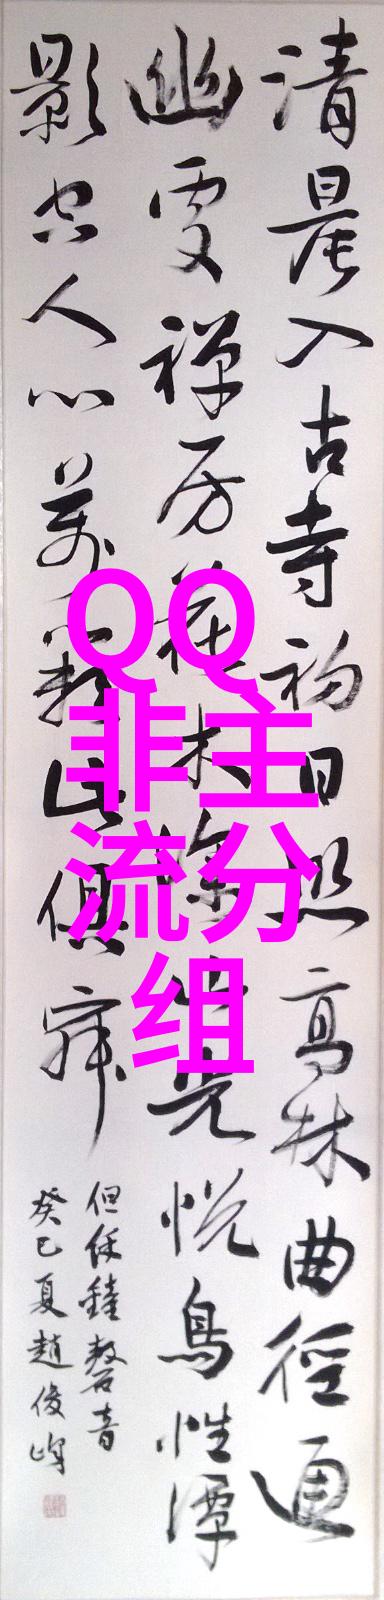 清晨入古寺初日照高林曲徑通
幽處禅房花木深山光悦鳥性潭
影空人心萬籟此俱寂
但餘鐘磬音
癸巳夏趙俊峰
QQ
非主
流分
组